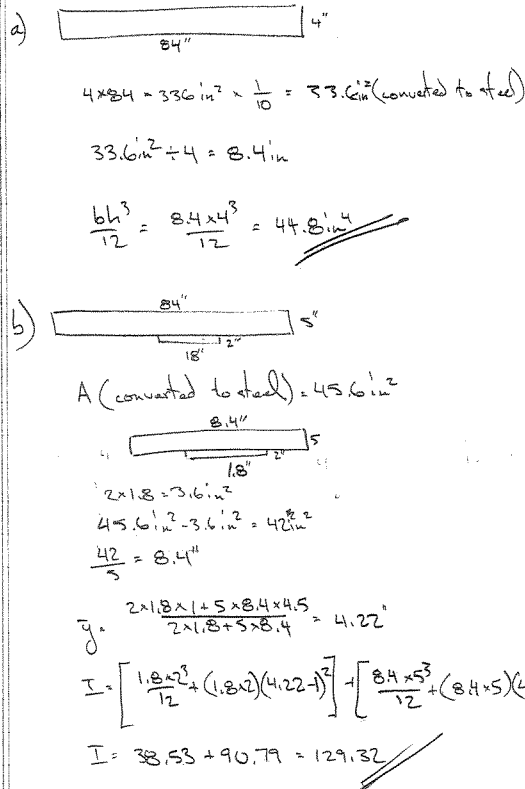 a)
4"
84"
4×84 = 336in² × 1/10 = 33.6in² (converted to steel)
33.6in² ÷ 4 = 8.4in
bh³/12 = 8.4×4³/12 = 44.8in⁴
b)
84"
5"
2"
18"
A (converted to steel) = 45.6in²
8.4"
5
2"
1.8"
2×1.8 = 3.6in²
45.6in² - 3.6in² = 42in²
42/5 = 8.4"
ȳ = 2×1.8×1+5×8.4×4.5/2×1.8+5×8.4 = 4.22"
I = [1.8×2³/12 + (1.8×2)(4.22-1)²] + [8.4×5³/12 + (8.4×5)(
I = 38.53 + 90.79 = 129.32